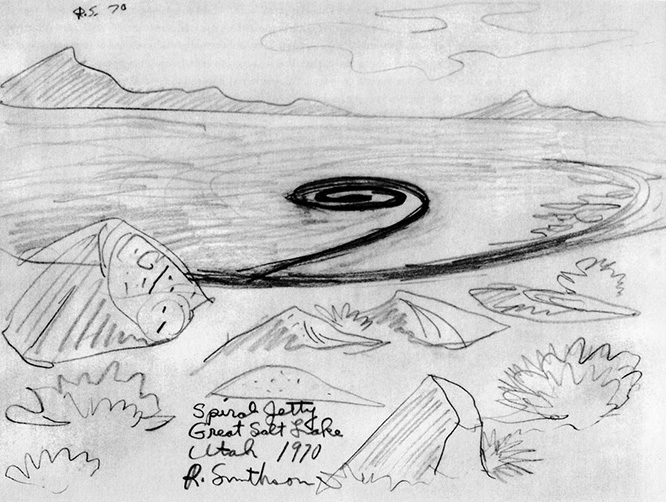 R.S. 70
Spiral Jetty
Great Salt Lake
Utah 1970
R. Smithson